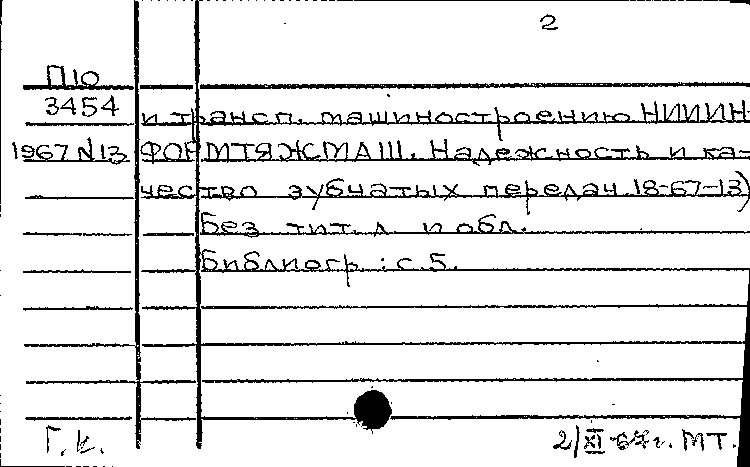 2
П10
3454 и трансп. машиностроению НИИИН-
1967 N13 ФОРМТЯЖМАШ. Надежность и ка-
чество зубчатых передач. 18-67-13)
Без тит. л. и обл.
Библиогр.: с. 5.
Г. к. 2/XI-67г. МТ.